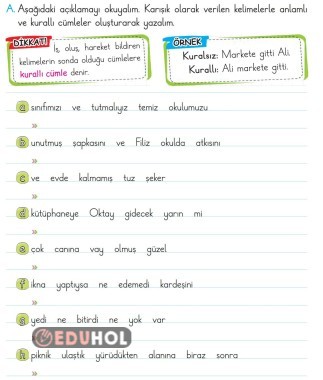 A. Aşağıdaki açıklamayı okuyalım. Karışık olarak verilen kelimelerle anlamlı
ve kurallı cümleler oluşturarak yazalım.
DİKKAT!
İş, oluş, hareket bildiren
kelimelerin sonda olduğu cümlelere
kurallı cümle denir.
ÖRNEK
Kuralsız: Markete gitti Ali.
Kurallı: Ali markete gitti.
a sınıfımızı ve tutmalıyız temiz okulumuzu
b unutmuş şapkasını ve Filiz okulda atkısını
c ve evde kalmamış tuz şeker
d kütüphaneye Oktay gidecek yarın mi
e çok canına vay olmuş güzel
f ikna yaptıysa ne edemedi kardeşini
g yedi ne bitirdi ne yok var
EDUHOL
h piknik ulaştık yürüdükten alanına biraz sonra